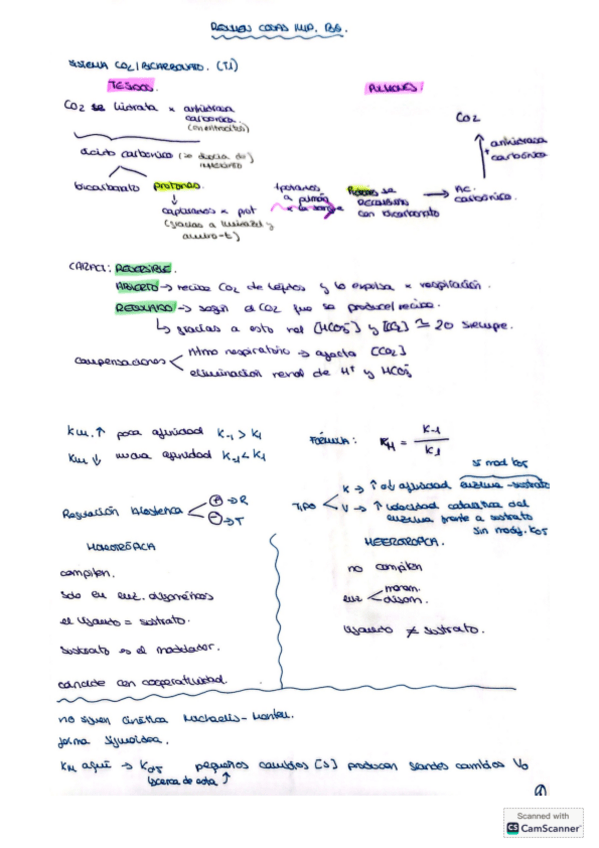 RESUMEN COSAS IMP. BQ.
SISTEMA CO2/BICARBONATO. (T1)
TEJIDOS.
PULMONES:
CO2 se hidrata x anhidrasa carbónica (en eritrocitos)
CO2
+ anhidrasa carbónica
ácido carbónico (se disocia de)
bicarbonato protones.
tportamos a pulmón x la sangre
Protones se RECOMBINAN con bicarbonato
Ác. carbónico.
captarlos x prot (gracias a imidazol y amino-t)
CARACT: REVERSIBLE.
ABIERTO → recibe CO2 de tejidos y lo expulsa x respiración.
REGULADO → según el CO2 que se produce/recibe.
↳ gracias a esto rel [HCO3-] y [CO2] ≃ 20 siempre.
compensaciones
ritmo respiratorio → ajusta [CO2]
eliminación renal de H+ y HCO3-
KM. ↑ poca afinidad K-1 > K1
KM ↓ mucha afinidad K-1 < K1
FÓRMULA: KM = K-1 / K1
si mod K0,5
Regulación alostérica
+ → R
- → T
TIPO
K → ↑ o ↓ afinidad enzima-sustrato
V → ↑ velocidad catalítica del enzima frente a sustrato
sin modif. K0,5
HOMOTRÓPICA
HETEROTRÓPICA.
compiten.
no compiten
solo en enz. oligoméricos
enz
monom.
oligom.
el ligando = sustrato.
ligando ≠ sustrato.
sustrato es el modulador.
coincide con cooperatividad.
no siguen cinética Michaelis-Menten.
forma sigmoidea.
KM aquí → K0,5 pequeños cambios [S] producen grandes cambios V0
↳ cerca de esta ↑
①
Scanned with
CS CamScanner